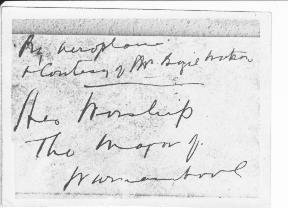 By aeroplane
& Courtesy of Mr Basil Watson
His Worship
The Mayor of
Warrnambool